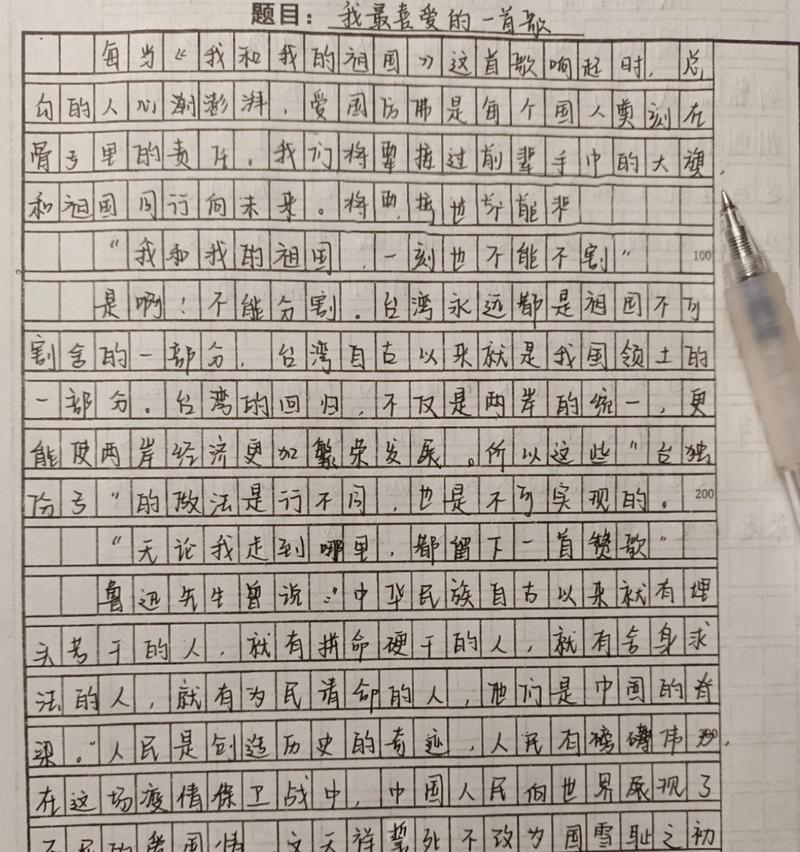 题目：我最喜爱的一首歌
每当《我和我的祖国》这首歌响起时，总
勾的人心潮澎湃，爱国仿佛是每个国人奠刻在
骨子里的责任。我们将要接过前辈手中的大旗，
和祖国同行向未来。将要接也能
“我和我的祖国，一刻也不能不割” 100
是啊！不能分割。台湾永远都是祖国不可
割舍的一部分，台湾自古以来就是我国领土的
一部分。台湾的回归，不仅是两岸的统一，更
能使两岸经济更加繁荣发展。所以这些“台独
份子”的做法是行不同，也是不可实现的。 200
“无论我走到哪里，都留下一首赞歌”
鲁迅先生曾说：“中华民族自古以来就有埋
头苦干的人，就有拼命硬干的人，就有舍身求
法的人，就有为民请命的人，他们是中国的脊
梁。”人民是创造历史的奇迹，人民有磅礴伟
在这场疫情保卫战中，中国人民向世界展现了
的爱国情，文天祥誓死不改为国雪耻之初